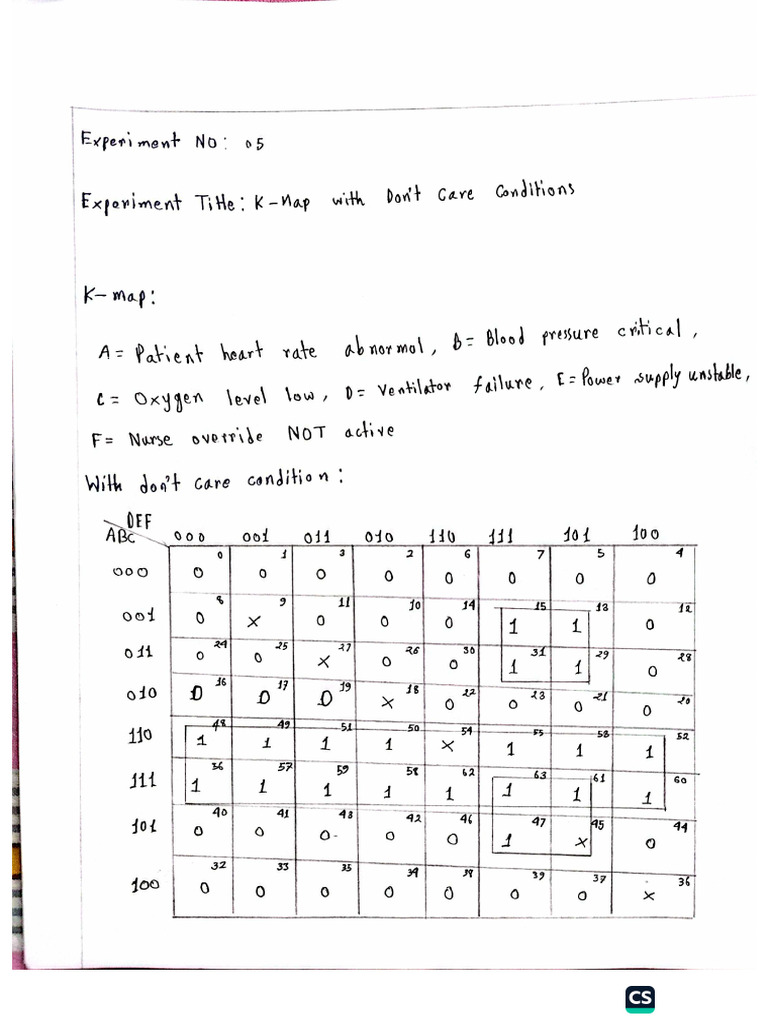 Experiment NO: 05
Experiment Title: K-Map with Don't Care Conditions
K-map:
A = Patient heart rate abnormal, B = Blood pressure critical,
C = Oxygen level low, D = Ventilator failure, E = Power supply unstable,
F = Nurse override NOT active
With don't care condition:
DEF
ABC 000 001 011 010 110 111 101 100
0 1 3 2 6 7 5 4
000 0 0 0 0 0 0 0 0
8 9 11 10 14 15 13 12
001 0 x 0 0 0 1 1 0
24 25 27 26 30 31 29 28
011 0 0 x 0 0 1 1 0
16 17 19 18 22 23 21 20
010 0 0 0 x 0 0 0 0
48 49 51 50 54 55 53 52
110 1 1 1 1 x 1 1 1
56 57 59 58 62 63 61 60
111 1 1 1 1 1 1 1 1
40 41 43 42 46 47 45 44
101 0 0 0 0 0 1 x 0
32 33 35 34 38 39 37 36
100 0 0 0 0 0 0 0 x
CS